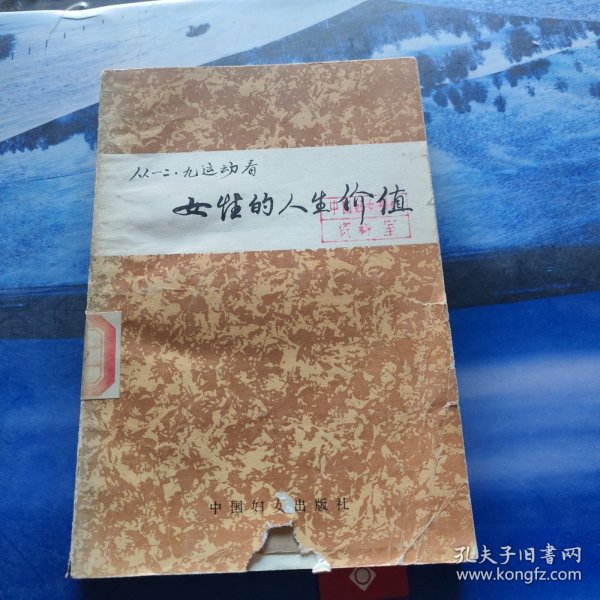 从一二·九运动看
女性的人生价值
资料室
中国妇女出版社
孔夫子旧书网
www.kongfz.com